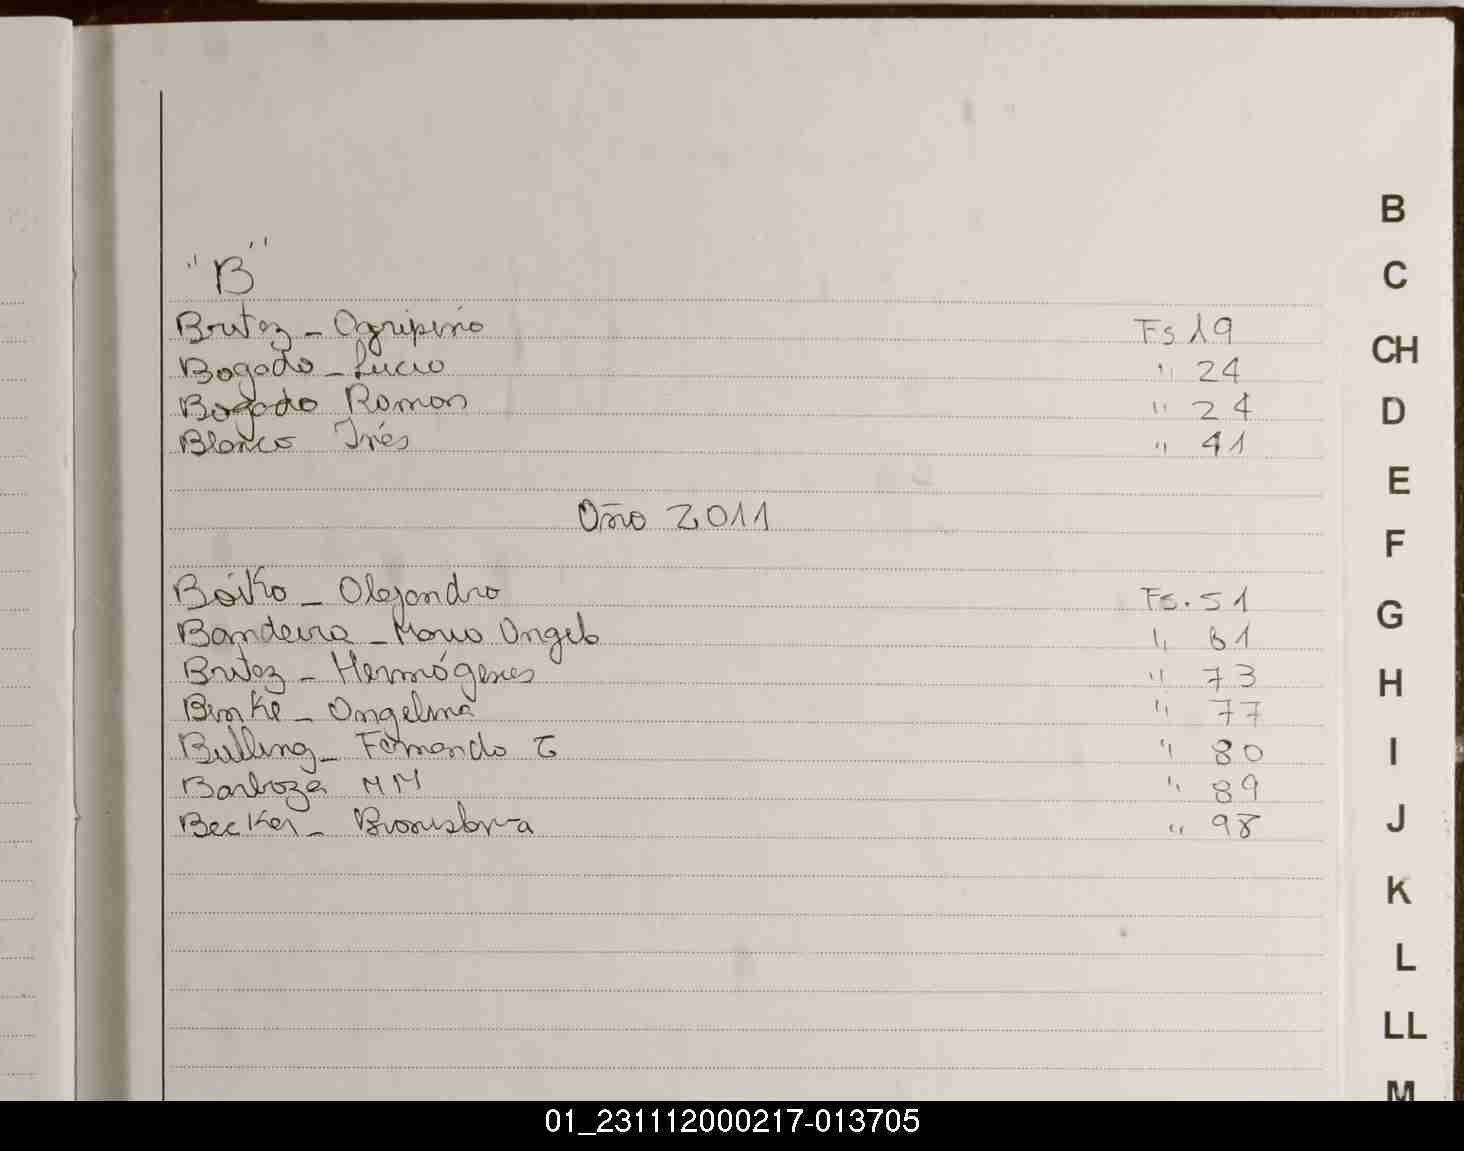 "B"
Britez - Agripino Fs 19
Bogado - Lucio " 24
Bogado Roman " 24
Blanco Inés " 41
Año 2011
Boiko - Alejandro Fs. 51
Bandeira - Mario Angel " 61
Britez - Hermógenes " 73
Benke - Angelina " 77
Bulling - Fernando " 80
Barboza MM " 89
Becker - " 98
B
C
CH
D
E
F
G
H
I
J
K
L
LL
M
01_231112000217-013705